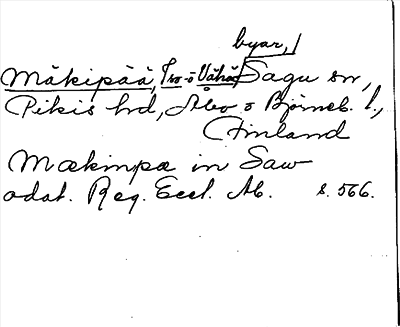 byar,
Mäkipää, Iso- o Vähä Sagu sn,
Pikis hd, Åbo o Björneb. l.,
Finland
Mækinpæ in Saw
odat. Reg. Eccl. Ab. s. 566.